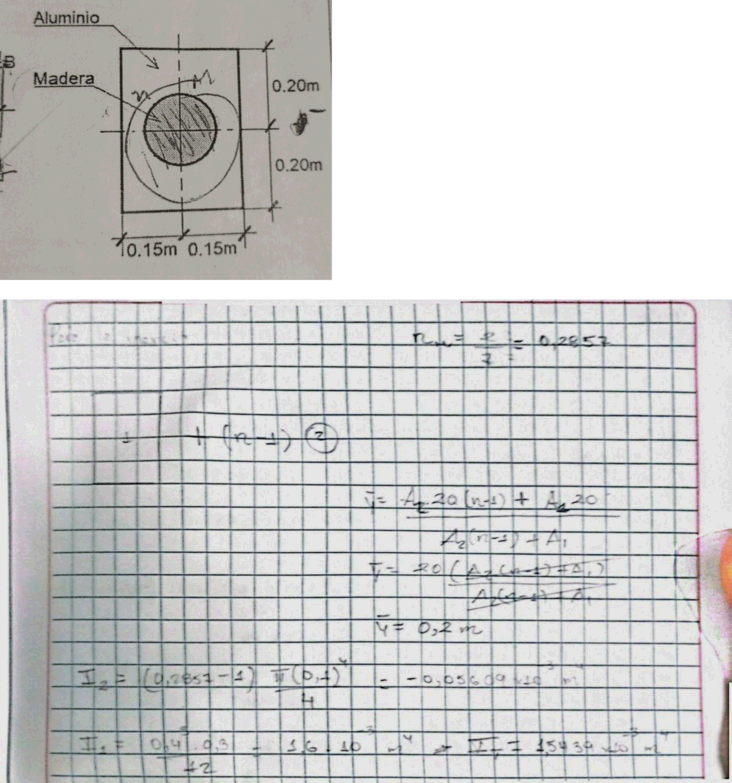 Aluminio
Madera
0.20m
0.20m
0.15m 0.15m
n = 2/7 = 0,2857
1 + (n-1) ②
ȳ = A₂ 20 (n-1) + A₁ 20 / A₂(n-1) + A₁
ȳ = 20 (A₂(n-1) + A₁) / A₂(n-1) + A₁
ȳ = 0,2 m
I₂ = (0,2857-1) π(0,1)⁴ / 4 = -0,05609 x10⁻³ m⁴
I₁ = 0,4³ . 0,3 / 12 = 1,6 . 10⁻³ m⁴